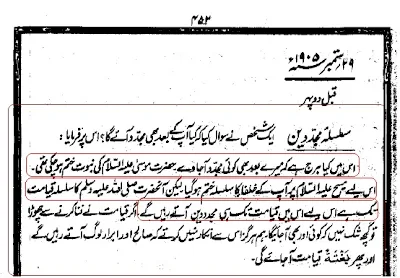 ۴۵۲
۲۹ ستمبر ۱۹۰۵ء
قبل دوپہر
سلسلہ مجدّدین ایک شخص نے سوال کیا کہ کیا آپ کے بعد بھی مجدّد آئے گا؟ اس پر فرمایا:
اس میں کیا ہرج ہے کہ میرے بعد بھی کوئی مجدّد آجاوے۔ حضرت موسیٰ علیہ السلام کی نبوت ختم ہو چکی تھی۔
اس لیے مسیح علیہ السلام پر آپ کے خلفاء کا سلسلہ ختم ہو گیا لیکن آنحضرت صلی اللہ علیہ وسلم کا سلسلہ قیامت
تک ہے اس لیے اس میں قیامت تک ہی مجدّدین آتے رہیں گے، اگر قیامت نے فنا کرنے سے چھوڑا
تو کچھ شک نہیں کہ کوئی اور بھی آجائے گا، ہم ہرگز اس سے انکار نہیں کرتے کہ صالح اور ابرار لوگ آتے رہیں گے
اور پھر بَغْتَةً قیامت آجائے گی۔